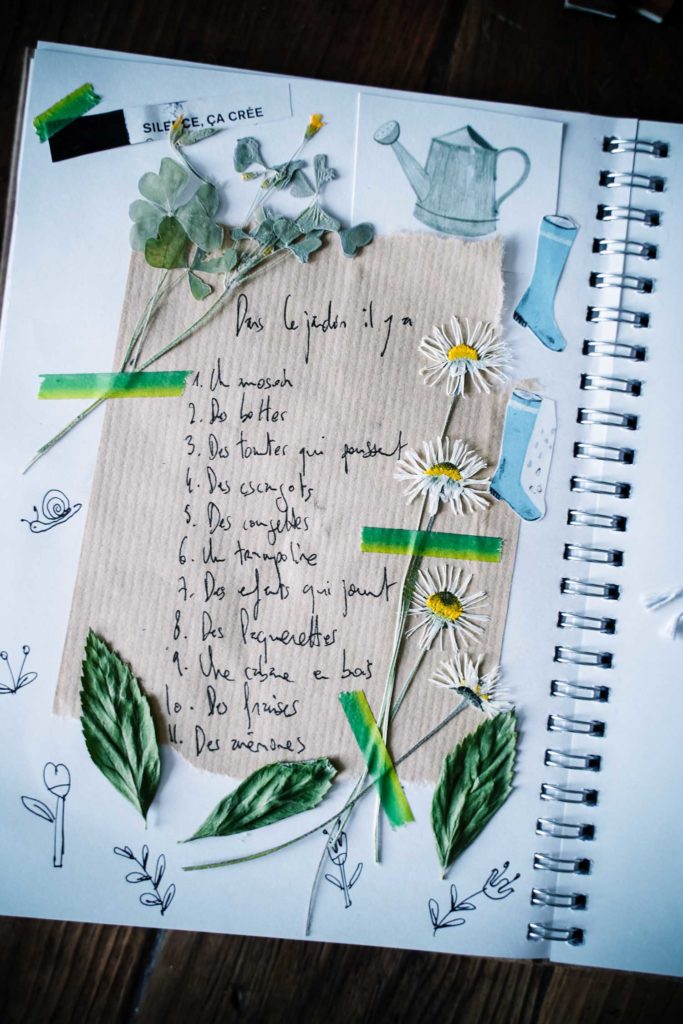 SILENCE, ÇA CRÉE
Dans le jardin il y a
1. Un
2. Des bottes
3. Des tomates qui poussent
4. Des escargots
5. Des courgettes
6. Un trampoline
7. Des efants qui jouent
8. Des Paquerettes
9. Une cabane en bois
10. Des fraises
11. Des